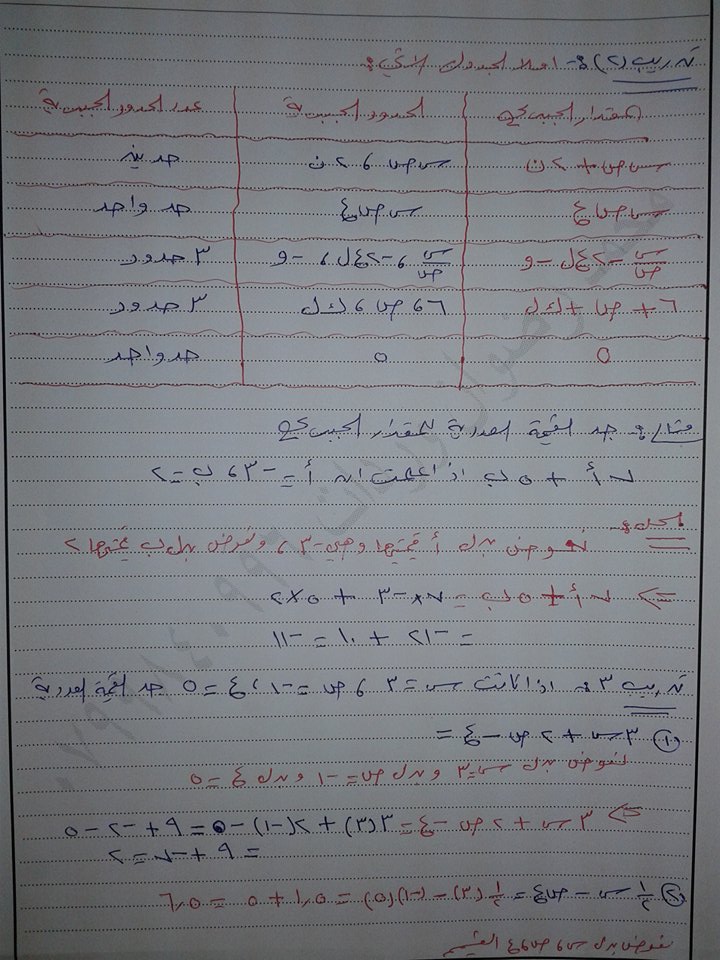 تدريب (٢) :- املأ الجدول الآتي :
المقدار الجبري الحدود الجبرية عدد الحدود الجبرية
س ص + ٢ن س ص ، ٢ن حدين
س ص ع س ص ع حد واحد
س/ص - ٢ع ل - و س/ص ، -٢ع ل ، -و ٣ حدود
٦ + ص + ك ل ٦ ، ص ، ك ل ٣ حدود
٥ ٥ حد واحد
مثال : جد القيمة العددية للمقدار الجبري
٧أ + ٥ب اذا علمت ان أ = -٣ ، ب = ٢
الحل :-
نعوض بدل أ قيمتها وهي -٣ ، ونعوض بدل ب قيمتها ٢
<= ٧أ + ٥ب = ٧×-٣ + ٥×٢
= -٢١ + ١٠ = -١١
تدريب ٣ : اذا كانت س = ٣ ، ص = -١ ، ع = ٥ جد القيمة العددية
(١) ٣س + ٢ص - ع =
نعوض بدل س=٣ وبدل ص=-١ وبدل ع=٥
<= ٣س + ٢ص - ع = ٣(٣) + ٢(-١) - ٥ = ٩ + -٢ - ٥
= ٩ + -٧ = ٢
(٢) ١/٢ س - ص ع = ١/٢ (٣) - (-١)(٥) = ١,٥ + ٥ = ٦,٥
نعوض بدل س ، ص ، ع القيم